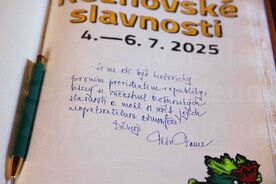 Rožnovské
slavnosti
4.—6. 7. 2025
Je mi ctí být historicky
prvním prezidentem republiky,
který se zúčastnil rožnovských
slavností a mohl si užít jejich
neopakovatelnou atmosféru
Děkuji